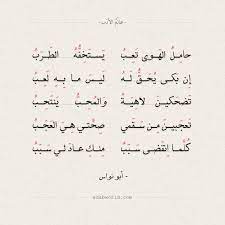 عالم الأدب
حامِلُ الهَوى تَعِبُ يَستَخِفُّهُ الطَرَبُ
إِن بَكى يُحَقُّ لَهُ لَيسَ ما بِهِ لَعِبُ
تَضحَكينَ لاهِيَةً وَالمُحِبُّ يَنتَحِبُ
تَعجَبينَ مِن سَقَمي صِحَّتي هِيَ العَجَبُ
كُلَّما اِنقَضى سَبَبٌ مِنكِ عادَ لي سَبَبُ
- أبو نواس